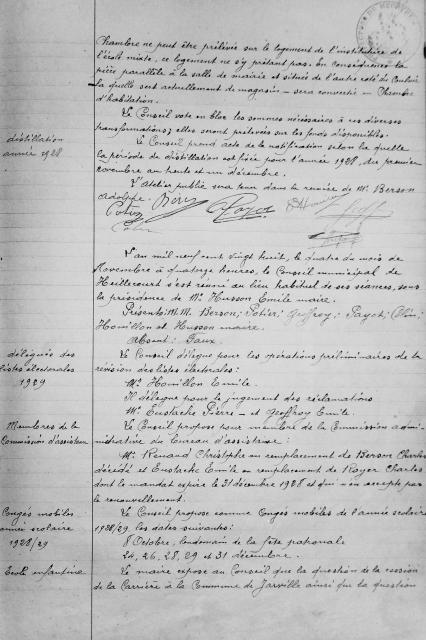 Chambre ne peut être prélevée sur le logement de l'institutrice de
l'école mixte, ce logement ne s'y prêtant pas. En conséquence la
pièce parallèle à la salle de mairie et située de l'autre côté du couloir
laquelle sert actuellement de magasin - sera convertie en Chambre
d'habitation.
Le Conseil vote en bloc les sommes nécessaires à ces diverses
transformations; elles seront prélevées sur les fonds disponibles.
distillation
année 1928
Le Conseil prend acte de la notification selon laquelle
la période de distillation est fixée pour l'année 1928, du premier
novembre au trente et un décembre.
L'atelier public sera tenu dans la remise de Mr Berson
Adolphe.
Potier
Payot
L'an mil neuf cent vingt huit, le quatre du mois de
Novembre à quatorze heures, le Conseil municipal de
Heillecourt s'est réuni au lieu habituel de ses séances, sous
la présidence de Mr Husson Emile maire.
Présents: M.M. Berson; Potier; Geoffroy; Payot;
Houillon et Husson maire.
Absent: Faux.
délégués des
listes électorales
1929
Le Conseil délègue pour les opérations préliminaires de la
révision des listes électorales:
Mr Houillon Emile.
Il délègue pour le jugement des réclamations
MM. Eustache Pierre - et Geoffroy Emile.
Membres de la
Commission d'assistance
Le Conseil propose pour membre de la Commission admi-
nistrative du bureau d'assistance:
Mr. Renaud Christophe en remplacement de Berson Charles
décédé et Eustache Emile en remplacement de Royer Charles
dont le mandat expire le 31 décembre 1928 et qui n'en accepte pas
le renouvellement.
Congés mobiles
année scolaire
1928/29
Le Conseil propose comme Congés mobiles de l'année scolaire
1928/29 les dates suivantes:
8 Octobre, lendemain de la fête patronale
24, 26, 28, 29 et 31 décembre.
Ecole enfantine
Le maire expose au Conseil que la question de la cession
de la Carrière à la Commune de Jarville ainsi que la question